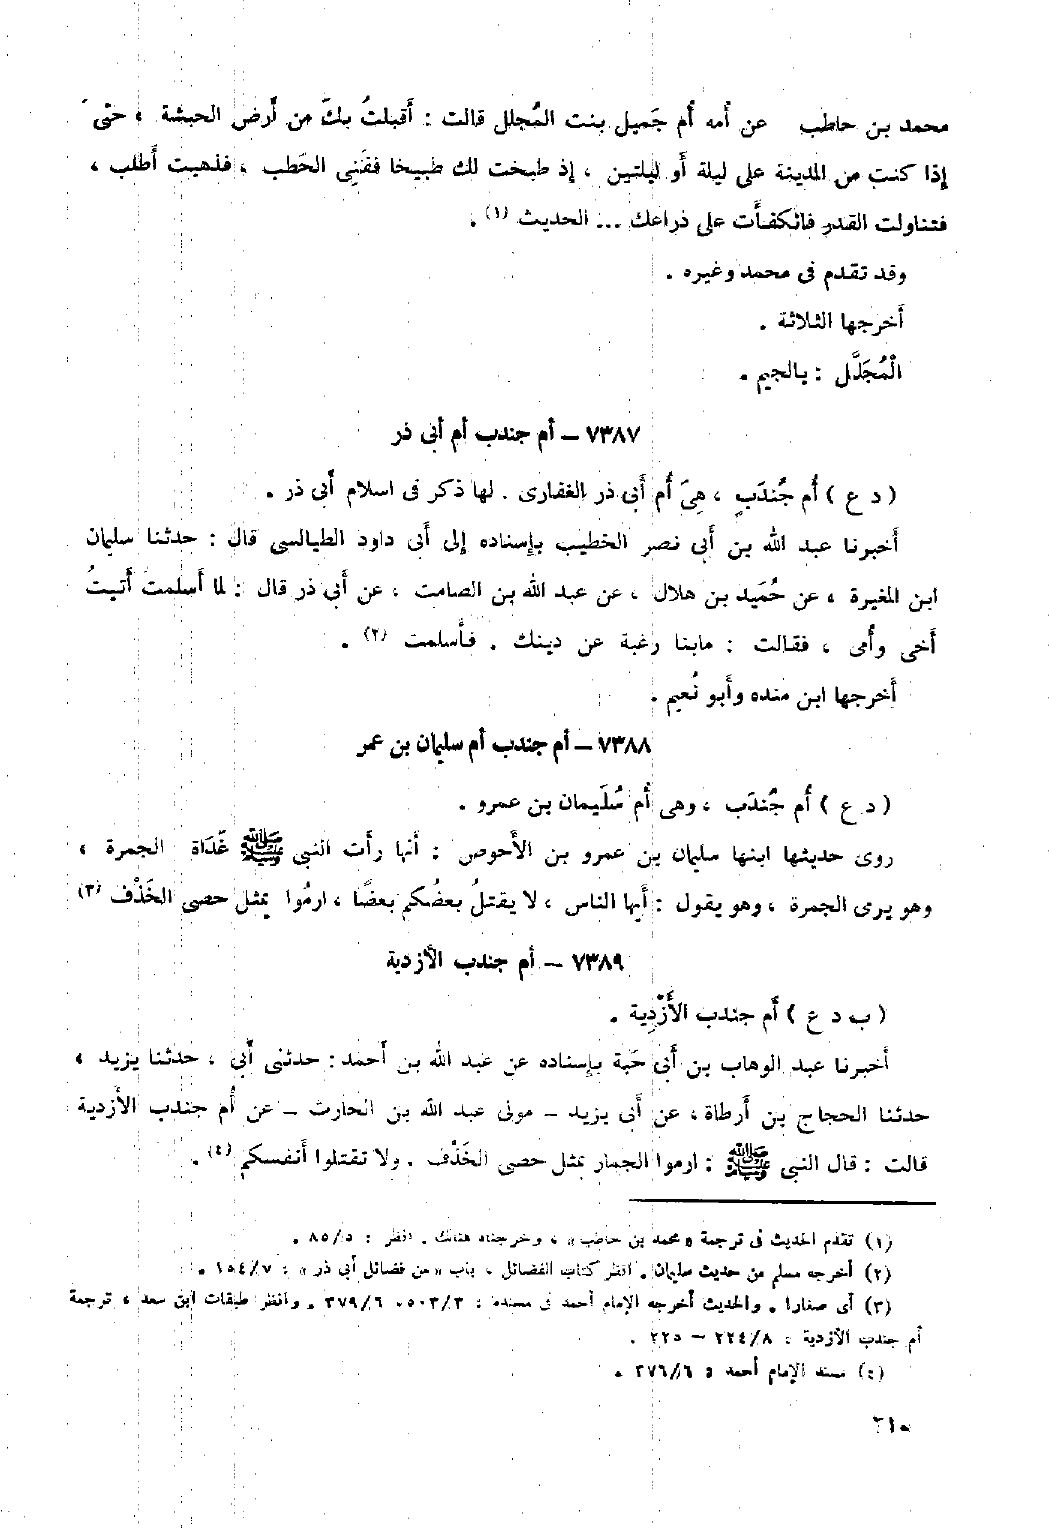 محمد بن حاطب عن أمه أم جَميل بنت المُجلل قالت : أقبلتُ بكَ من أرض الحبشة ، حتى
إذا كنت من المدينة على ليلة أو ليلتين ، إذ طبخت لك طبيخا ففَنِى الحَطب ، فذهبت أطلب ،
فتناولت القدر فانكفأت على ذراعك ... الحديث (١) .
وقد تقدم فى محمد وغيره .
أخرجها الثلاثة .
الْمُجَلَّل : بالجيم .
٧٣٨٧ – أم جندب أم أبى ذر
( د ع ) أُم جُندَبٍ ، هِىَ أُم أَبى ذر الغفارى . لها ذكر فى اسلام أبى ذر .
أخبرنا عبد الله بن أبى نصر الخطيب بإسناده إلى أبى داود الطيالسى قال : حدثنا سليمان
ابن المغيرة ، عن حُمَيد بن هلال ، عن عبد الله بن الصامت ، عن أبى ذر قال : لما أسلمت أتيتُ
أخى وأُمى ، فقالت : مابنا رغبة عن دينك . فأسلمت (٢) .
أخرجها ابن منده وأبو نُعيم .
٧٣٨٨ – أم جندب أم سليمان بن عمر
( د ع ) أُم جُندَب ، وهى أُم سُلَيمان بن عمرو .
روى حديثها ابنها سليمان بن عمرو بن الأحوص : أنها رأت النبى ﷺ غَدَاة الجمرة ،
وهو يرى الجمرة ، وهو يقول : أيها الناس ، لا يقتلُ بعضُكم بعضًا ، ارمُوا بمثل حصى الخَذْف (٣)
٧٣٨٩ – أم جندب الأزدية
( ب د ع ) أم جندب الأَزْدِية .
أخبرنا عبد الوهاب بن أبى حَبة بإسناده عن عبد الله بن أحمد : حدثنى أبى ، حدثنا يزيد ،
حدثنا الحجاج بن أرطاة ، عن أبى يزيد – مولى عبد الله بن الحارث – عن أُم جندب الأزدية
قالت : قال النبى ﷺ : ارموا الجمار بمثل حصى الخَذْف . ولا تقتلوا أنفسكم (٤) .
(١) تقدم الحديث فى ترجمة « محمد بن حاطب » ، وخرجناه هنالك . انظر : ٨٥/٥ .
(٢) أخرجه مسلم من حديث سليمان . انظر كتاب الفضائل ، باب « من فضائل أبى ذر » : ١٥٤/٧ .
(٣) أى صغارا . والحديث أخرجه الإمام أحمد فى مسنده : ٥٠٣/٣ ، ٣٧٩/٦ . وانظر طبقات ابن سعد ، ترجمة
أم جندب الأزدية : ٢٢٤/٨ – ٢٢٥ .
(٤) مسند الإمام أحمد : ٣٧٦/٦ .
٣١٠